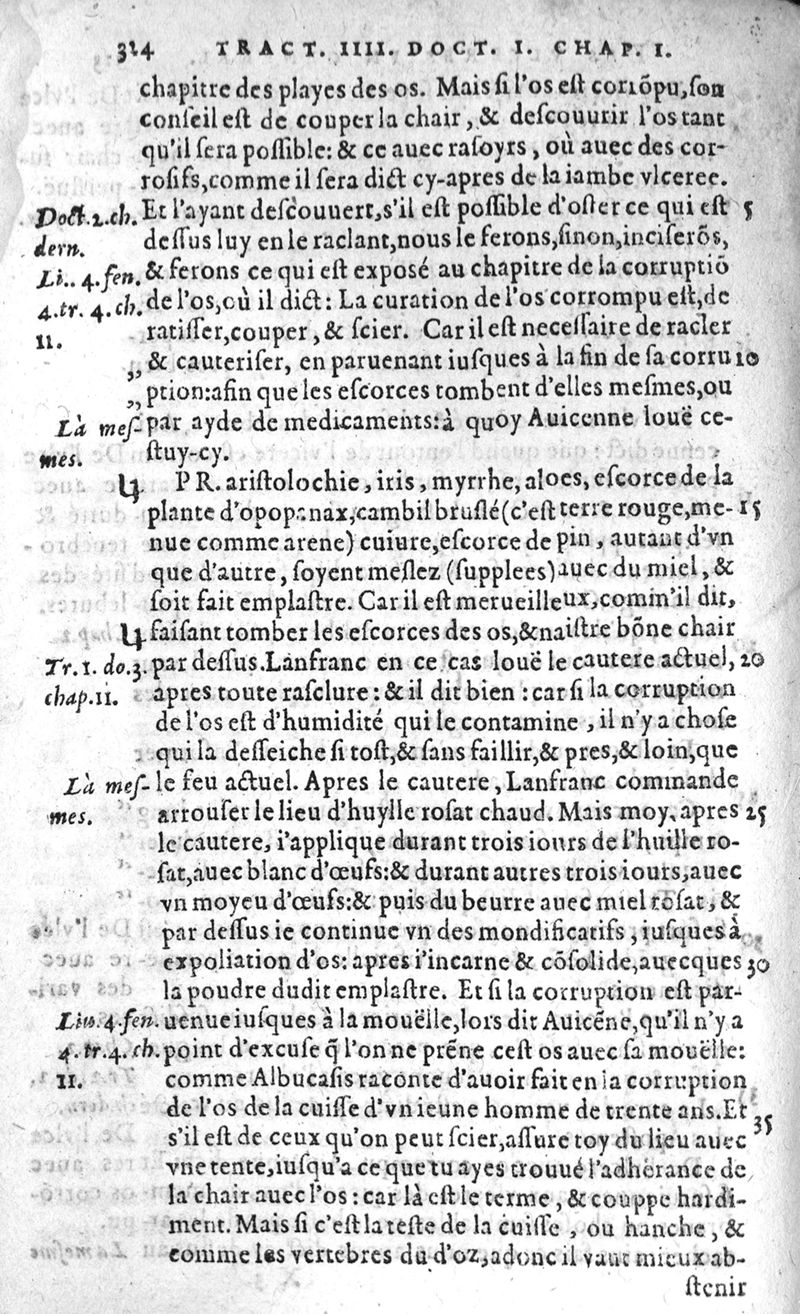 314 TRACT. IIII. DOCT. I. CHAP. I.
chapitre des playes des os. Mais si l'os est corrõpu, son
conseil est de couper la chair, & descouurir l'os tant
qu'il sera possible: & ce auec rasoyrs, où auec des cor-
rosifs, comme il sera dict cy-apres de la iambe vlceree.
Doct. 2. ch. Et l'ayant descouuert, s'il est possible d'oster ce qui est 5
dern. dessus luy en le raclant, nous le ferons, sinon, inciserõs,
Li.. 4. fen. & ferons ce qui est exposé au chapitre de la corruptiõ
4. tr. 4. ch. de l'os, où il dict: La curation de l'os corrompu est, de
11. ratisser, couper, & scier. Car il est necessaire de racler
„ & cauteriser, en paruenant iusques à la fin de sa corru 10
„ ption: afin que les escorces tombent d'elles mesmes, ou
Là mes- par ayde de medicaments: à quoy Auicenne louë ce-
mes. stuy-cy.
♃ PR. aristolochie, iris, myrrhe, aloes, escorce de la
plante d'opopanax, cambil bruslé (c'est terre rouge, me- 15
nue comme arene) cuiure, escorce de pin, autant d'vn
que d'autre, soyent meslez (supplees) auec du miel, &
soit fait emplastre. Car il est merueilleux, comm'il dit,
♃ faisant tomber les escorces des os, & naistre bõne chair
Tr. 1. do. 3. par dessus. Lanfranc en ce cas louë le cautere actuel, 20
chap. 11. apres toute rasclure: & il dit bien: car si la corruption
de l'os est d'humidité qui le contamine, il n'y a chose
qui la desseiche si tost, & sans faillir, & pres, & loin, que
Là mes- le feu actuel. Apres le cautere, Lanfranc commande
mes. arrouser le lieu d'huylle rosat chaud. Mais moy, apres 25
le cautere, i'applique durant trois iours de l'huille ro-
sat, auec blanc d'œufs: & durant autres trois iours, auec
vn moyeu d'œufs: & puis du beurre auec miel rosat, &
par dessus ie continue vn des mondificatifs, iusques à
expoliation d'os: apres i'incarne & cõsolide, auecques 30
la poudre dudit emplastre. Et si la corruption est par-
Liu. 4. fen. uenue iusques à la mouëlle, lors dit Auicẽne, qu'il n'y a
4. tr. 4. ch. point d'excuse q̃ l'on ne prẽne cest os auec sa mouëlle:
11. comme Albucasis raconte d'auoir fait en la corruption
de l'os de la cuisse d'vn ieune homme de trente ans. Et
s'il est de ceux qu'on peut scier, assure toy du lieu auec 35
vne tente, iusqu'a ce que tu ayes trouué l'adherance de
la chair auec l'os: car là est le terme, & couppe hardi-
ment. Mais si c'est la teste de la cuisse, ou hanche, &
comme les vertebres du d'oz, adonc il vaut mieux ab-
stenir